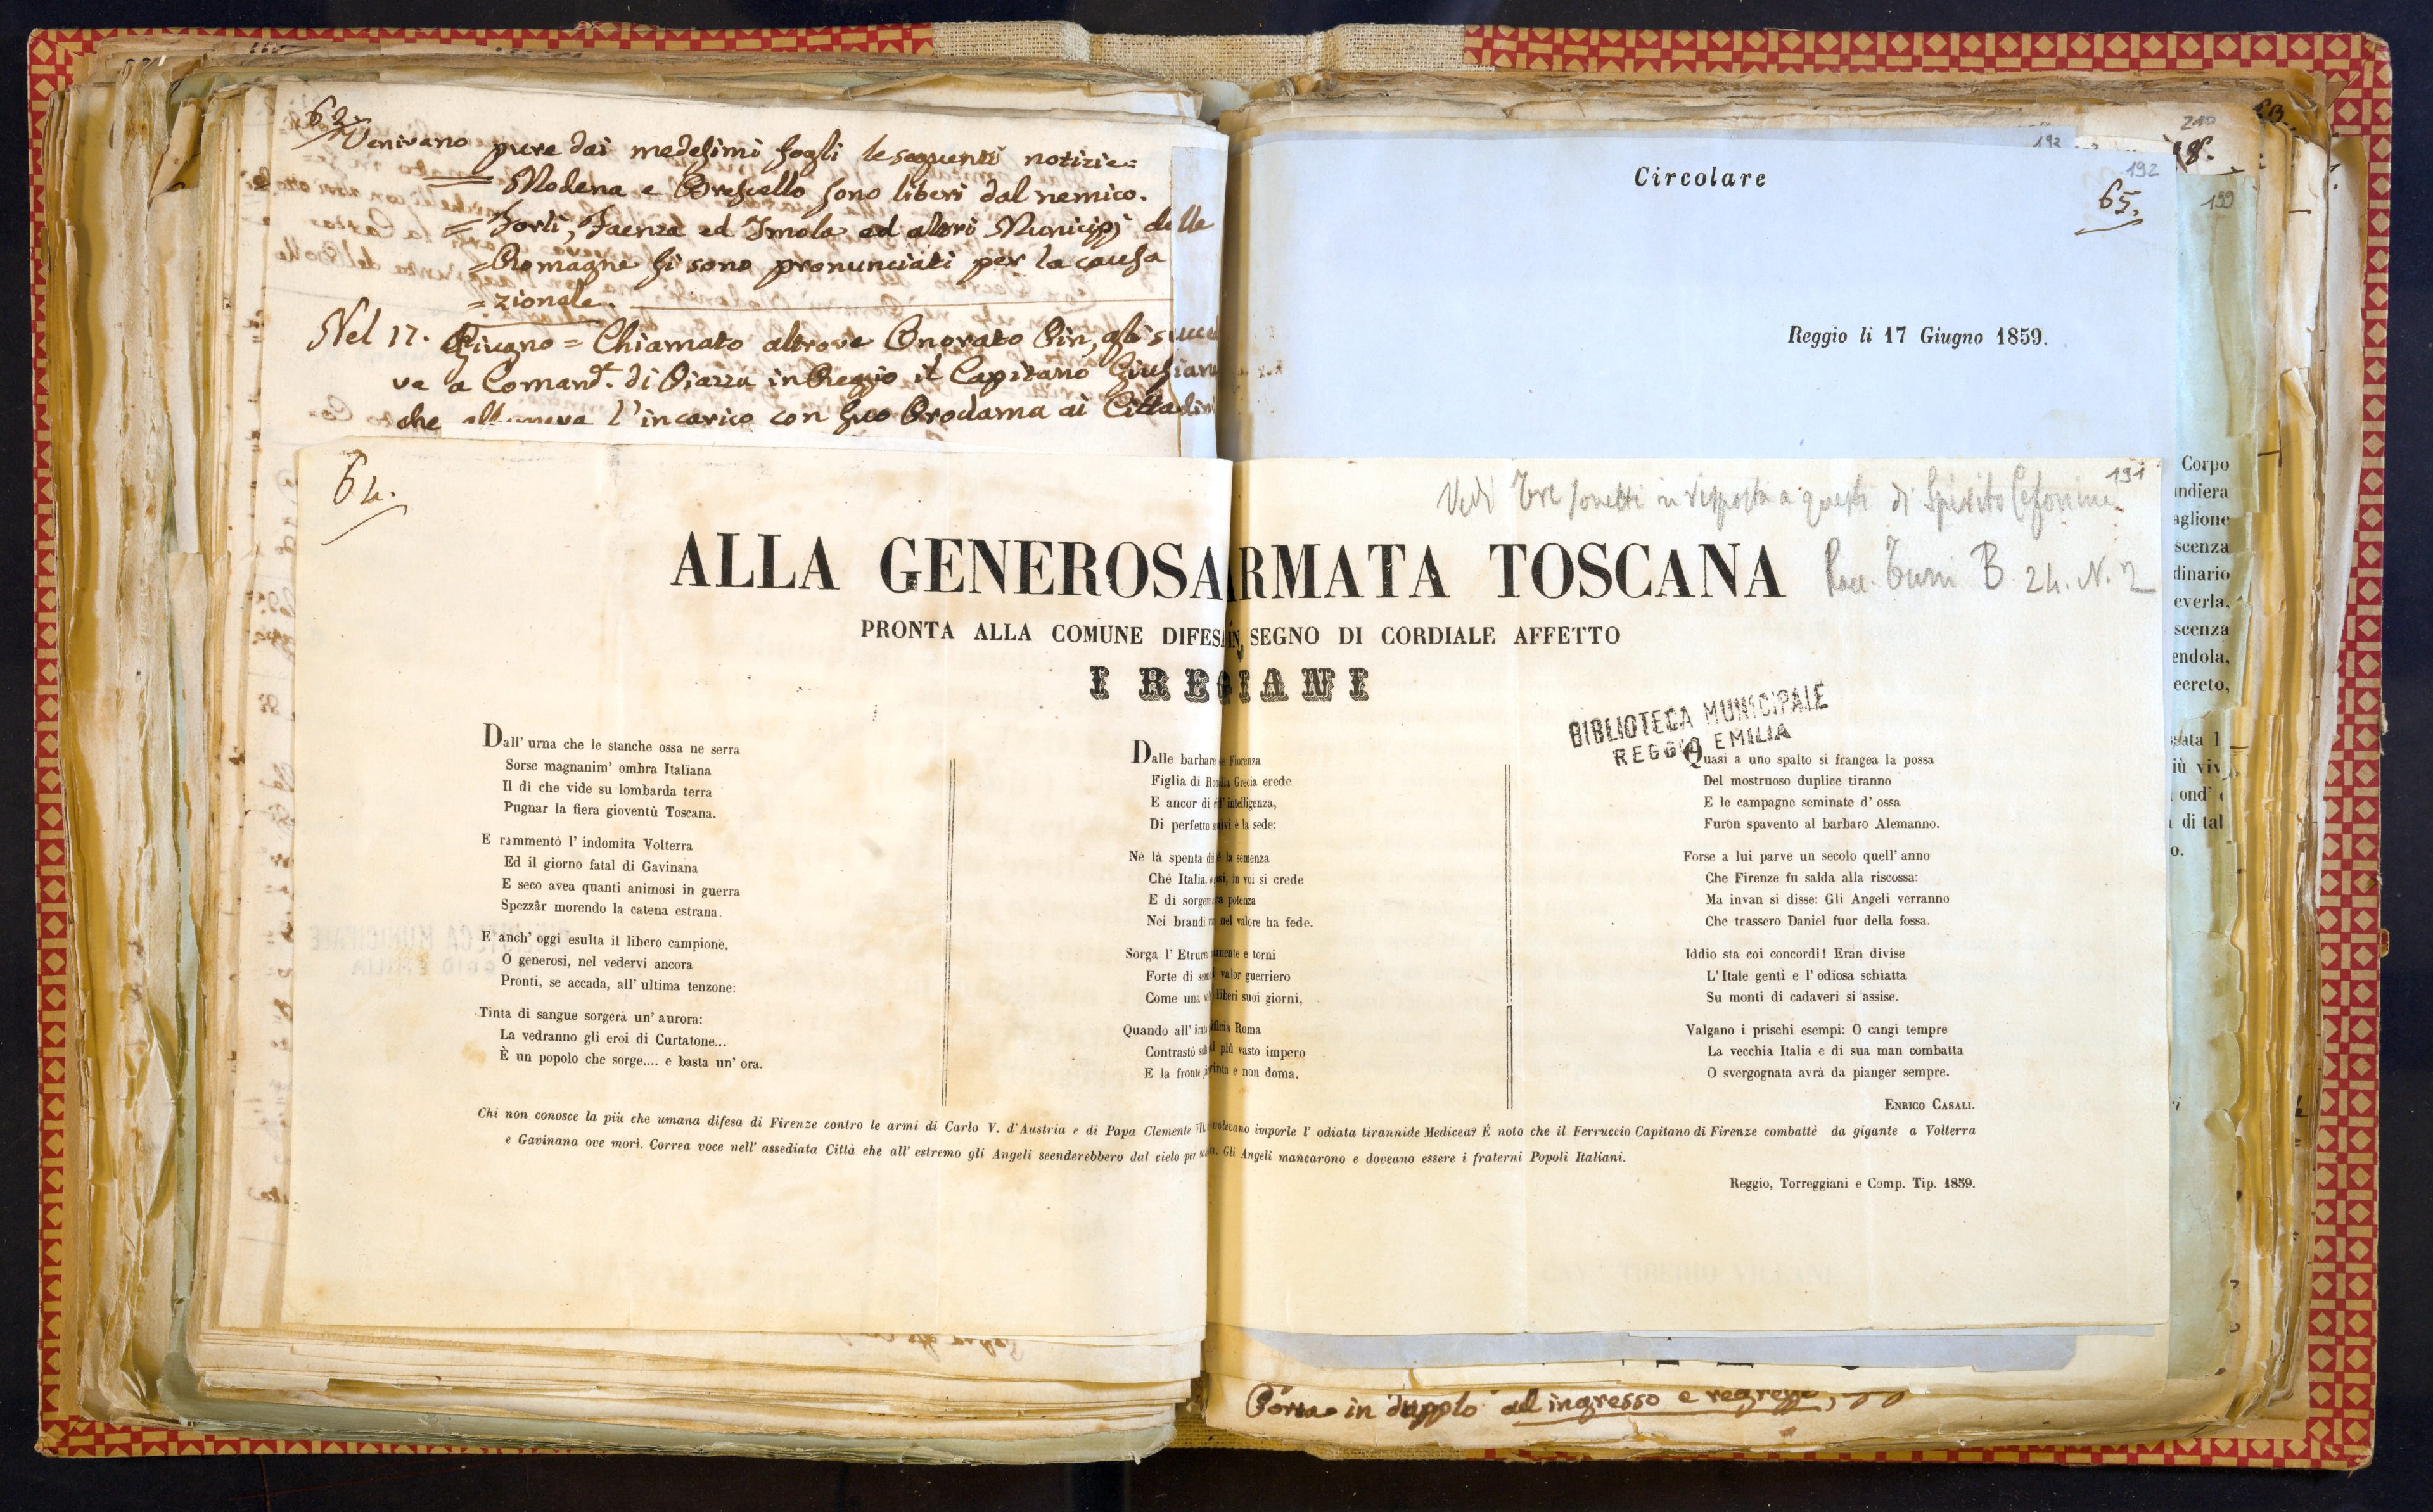 62.
Venivano pure dai medesimi fogli le seguenti notizie=
= Modena e Brescello sono liberi dal nemico.
= Forlì, Faenza ed Imola ed altri Municipj delle
=Romagne si sono pronunciati per la causa
=zionale.
Nel 17. Giugno = Chiamato altrove Onorato Pin, gli succe
va a Comand.e di Piazza in Reggio il Capitano
che l'incarico con suo Proclama ai Cittadin
Circolare
192
65.
199
210
Reggio li 17 Giugno 1859.
64.
191
Vedi Tre sonetti in risposta a questi di Spirito
Racc. Turri B. 24. N. 2
ALLA GENEROSA ARMATA TOSCANA
PRONTA ALLA COMUNE DIFESA IN SEGNO DI CORDIALE AFFETTO
I REGGIANI
BIBLIOTECA MUNICIPALE
REGGIO EMILIA
Dall' urna che le stanche ossa ne serra
Sorse magnanim' ombra Italiana
Il dì che vide su lombarda terra
Pugnar la fiera gioventù Toscana.
E rammentò l' indomita Volterra
Ed il giorno fatal di Gavinana
E seco avea quanti animosi in guerra
Spezzâr morendo la catena estrana.
E anch' oggi esulta il libero campione,
O generosi, nel vedervi ancora
Pronti, se accada, all' ultima tenzone:
Tinta di sangue sorgerà un' aurora:
La vedranno gli eroi di Curtatone...
È un popolo che sorge.... e basta un' ora.
Dalle barbare Fiorenza
Figlia di Grecia erede
E ancor di intelligenza,
Di perfetto è la sede:
Né là spenta la semenza
Ché Italia, in voi si crede
E di potenza
Nei brandi nel valore ha fede.
Sorga l' e torni
Forte di valor guerriero
Come una liberi suoi giorni,
Quando all' Roma
Contrastò più vasto impero
E la fronte e non doma.
Quasi a uno spalto si frangea la possa
Del mostruoso duplice tiranno
E le campagne seminate d' ossa
Furon spavento al barbaro Alemanno.
Forse a lui parve un secolo quell' anno
Che Firenze fu salda alla riscossa:
Ma invan si disse: Gli Angeli verranno
Che trassero Daniel fuor della fossa.
Iddio sta coi concordi! Eran divise
L' Itale genti e l' odiosa schiatta
Su monti di cadaveri si assise.
Valgano i prischi esempi: O cangi tempre
La vecchia Italia e di sua man combatta
O svergognata avrà da pianger sempre.
ENRICO CASALI.
Chi non conosce la più che umana difesa di Firenze contro le armi di Carlo V. d' Austria e di Papa Clemente VII. volevano imporle l' odiata tirannide Medicea? È noto che il Ferruccio Capitano di Firenze combattè da gigante a Volterra
e Gavinana ove morì. Correa voce nell' assediata Città che all' estremo gli Angeli scenderebbero dal cielo per Gli Angeli mancarono e doveano essere i fraterni Popoli Italiani.
Reggio, Torreggiani e Comp. Tip. 1859.
Corpo
andiera
aglione
scenza
dinario
everla,
scenza
endola,
ecreto,
iù viv
ond'
di tal
o.
Porta in dupplo ad ingresso e regresso,